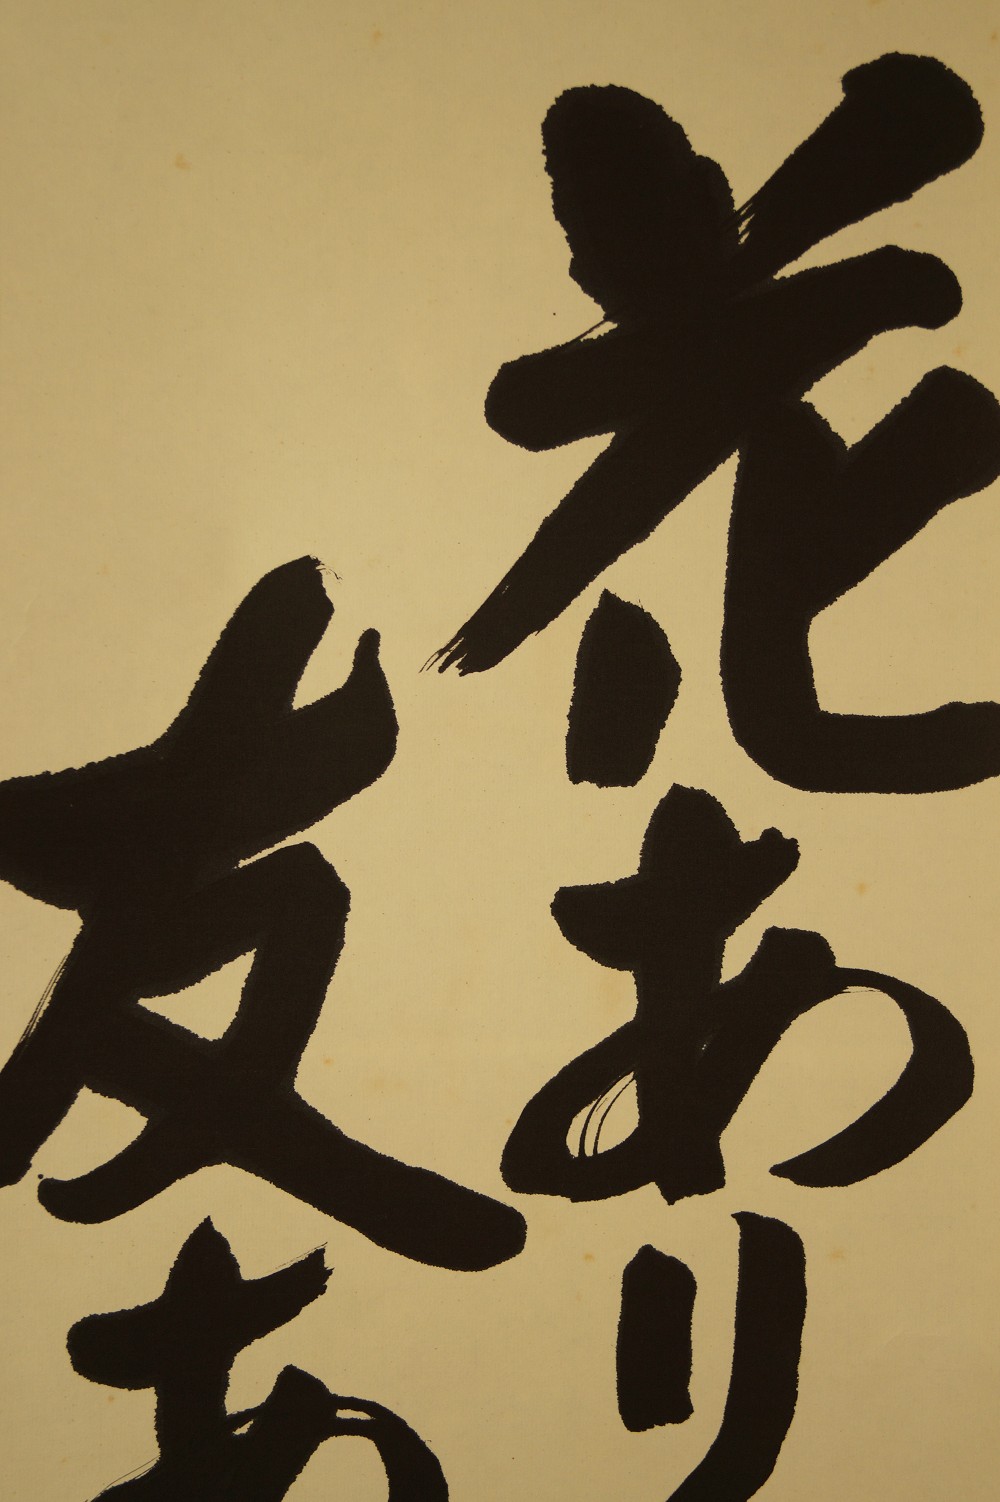 花あり
友あ